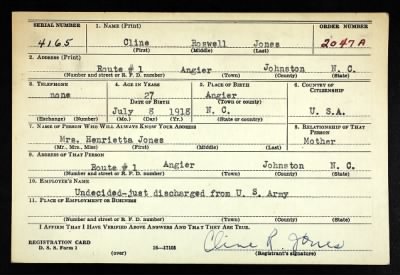 SERIAL NUMBER 1. NAME (Print) ORDER NUMBER
4165 Cline Roswell Jones 2047A
(First) (Middle) (Last)
2. ADDRESS (Print)
Route # 1 Angier Johnston N. C.
(Number and street or R. F. D. number) (Town) (County) (State)
3. TELEPHONE 4. AGE IN YEARS 5. PLACE OF BIRTH 6. COUNTRY OF CITIZENSHIP
none 27 Angier
DATE OF BIRTH (Town or county)
July 8 1918 N. C. U. S.A.
(Exchange) (Number) (Mo.) (Day) (Yr.) (State or country)
7. NAME OF PERSON WHO WILL ALWAYS KNOW YOUR ADDRESS 8. RELATIONSHIP OF THAT PERSON
Mrs. Henrietta Jones Mother
(Mr., Mrs., Miss) (First) (Middle) (Last)
9. ADDRESS OF THAT PERSON
Route # 1 Angier Johnston N. C.
(Number and street or R. F. D. number) (Town) (County) (State)
10. EMPLOYER'S NAME
Undecided-just discharged from U. S. Army
11. PLACE OF EMPLOYMENT OR BUSINESS
(Number and street or R. F. D. number) (Town) (County) (State)
I AFFIRM THAT I HAVE VERIFIED ABOVE ANSWERS AND THAT THEY ARE TRUE.
REGISTRATION CARD
D. S. S. Form 1 16—17105 Cline R. Jones
(over) (Registrant's signature)